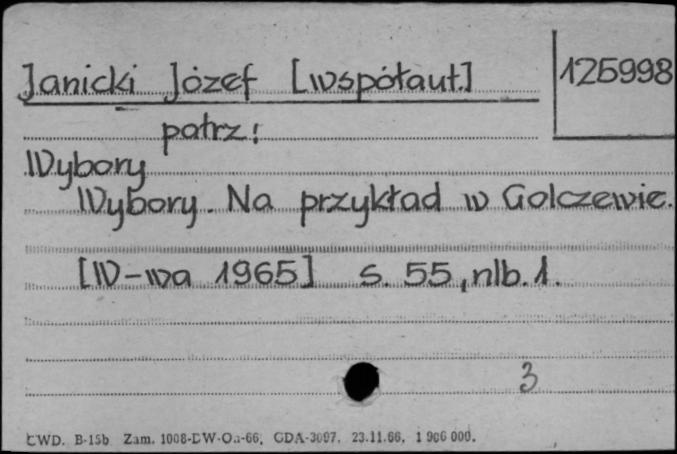 Janicki Józef [współaut.] 125998
patrz:
Wybory
Wybory. Na przykład w Golczewie.
[W-wa 1965] s. 55, nlb. 1.
3
CWD. B-15b Zam. 1008-DW-Oa-66, GDA-3097, 23.11.66, 1 906 000.